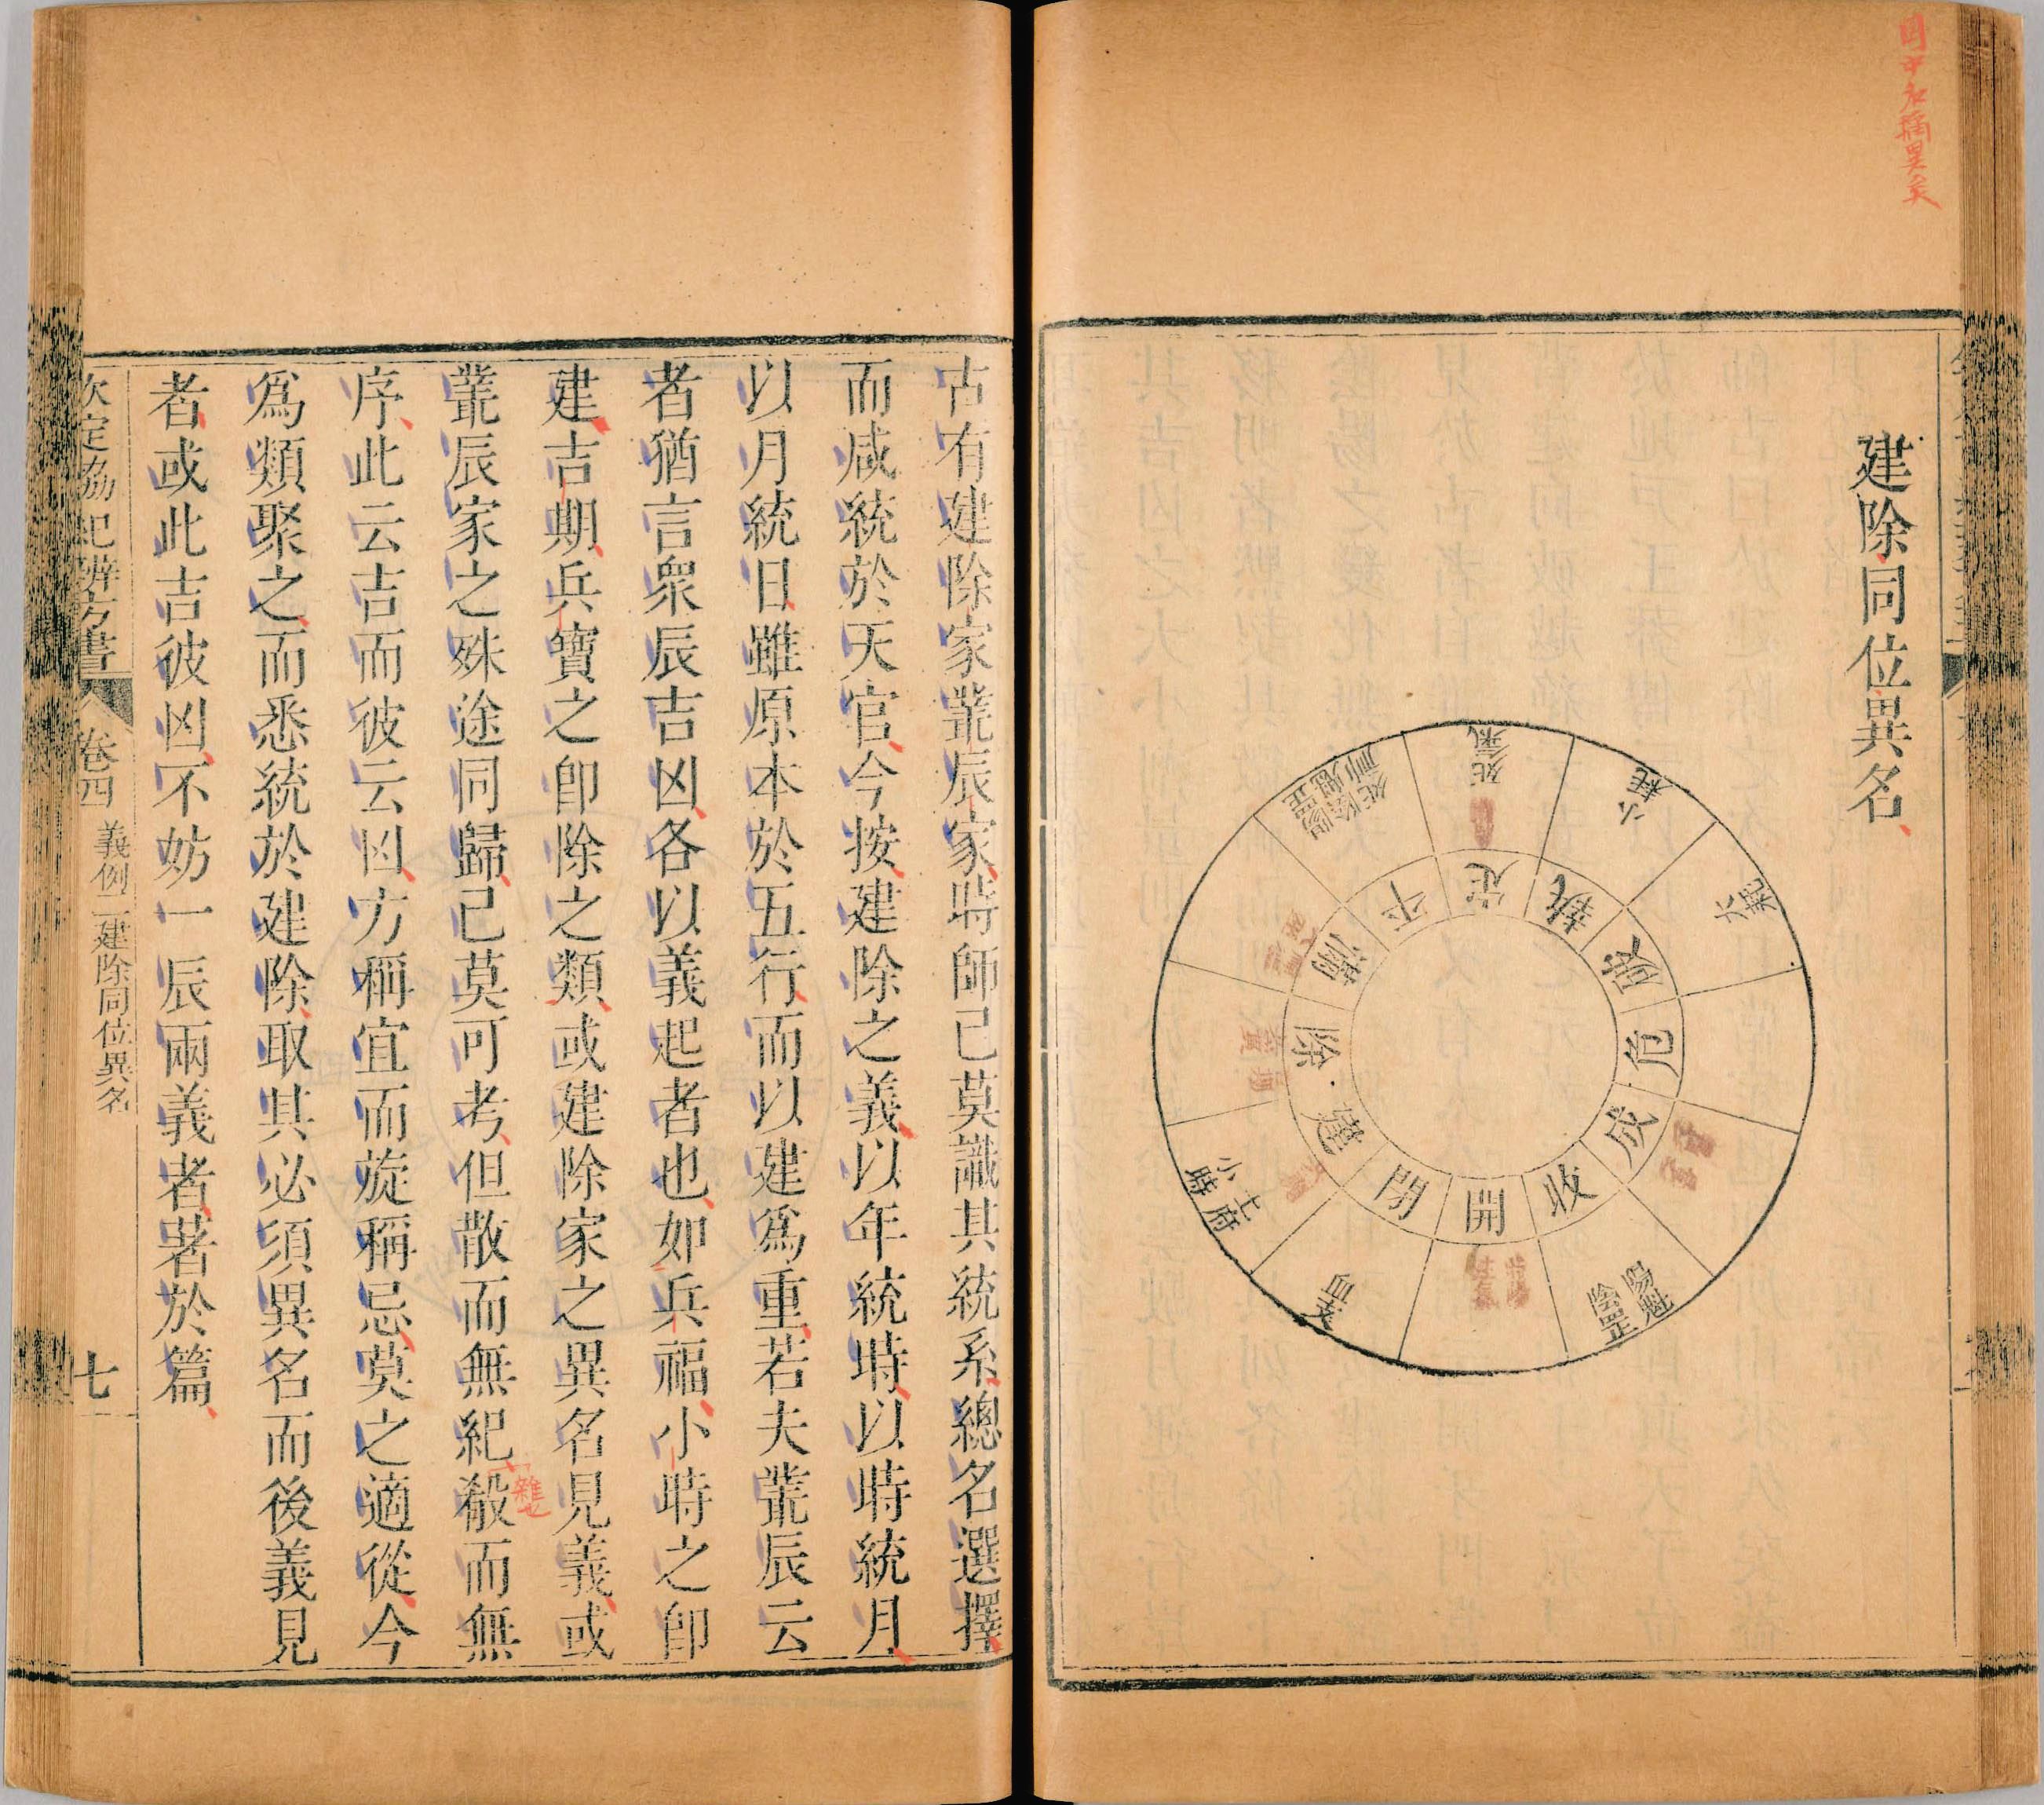 建除同位異名
建
除
滿
平
定
執
破
危
成
收
開
閉
死氣
小耗
大耗
小時
土府
血支
陽魁
陰罡
古有建除家叢辰家時師己莫識其統系總名選擇
而咸統於天官今按建除之義以年統時以時統月
以月統日雖原本於五行而以建爲重若夫叢辰云
者猶言衆辰吉凶各以義起者也如兵福小時之卽
建吉期兵寶之卽除之類或建除家之異名見義或
叢辰家之殊途同歸己莫可考但散而無紀殽而無
雜也
序此云吉而彼云凶方稱宜而旋稱忌莫之適從今
爲類聚之而悉統於建除取其必須異名而後義見
者或此吉彼凶不妨一辰兩義者著於篇
欽定協紀辨方書 卷四 義例二 建除同位異名 七